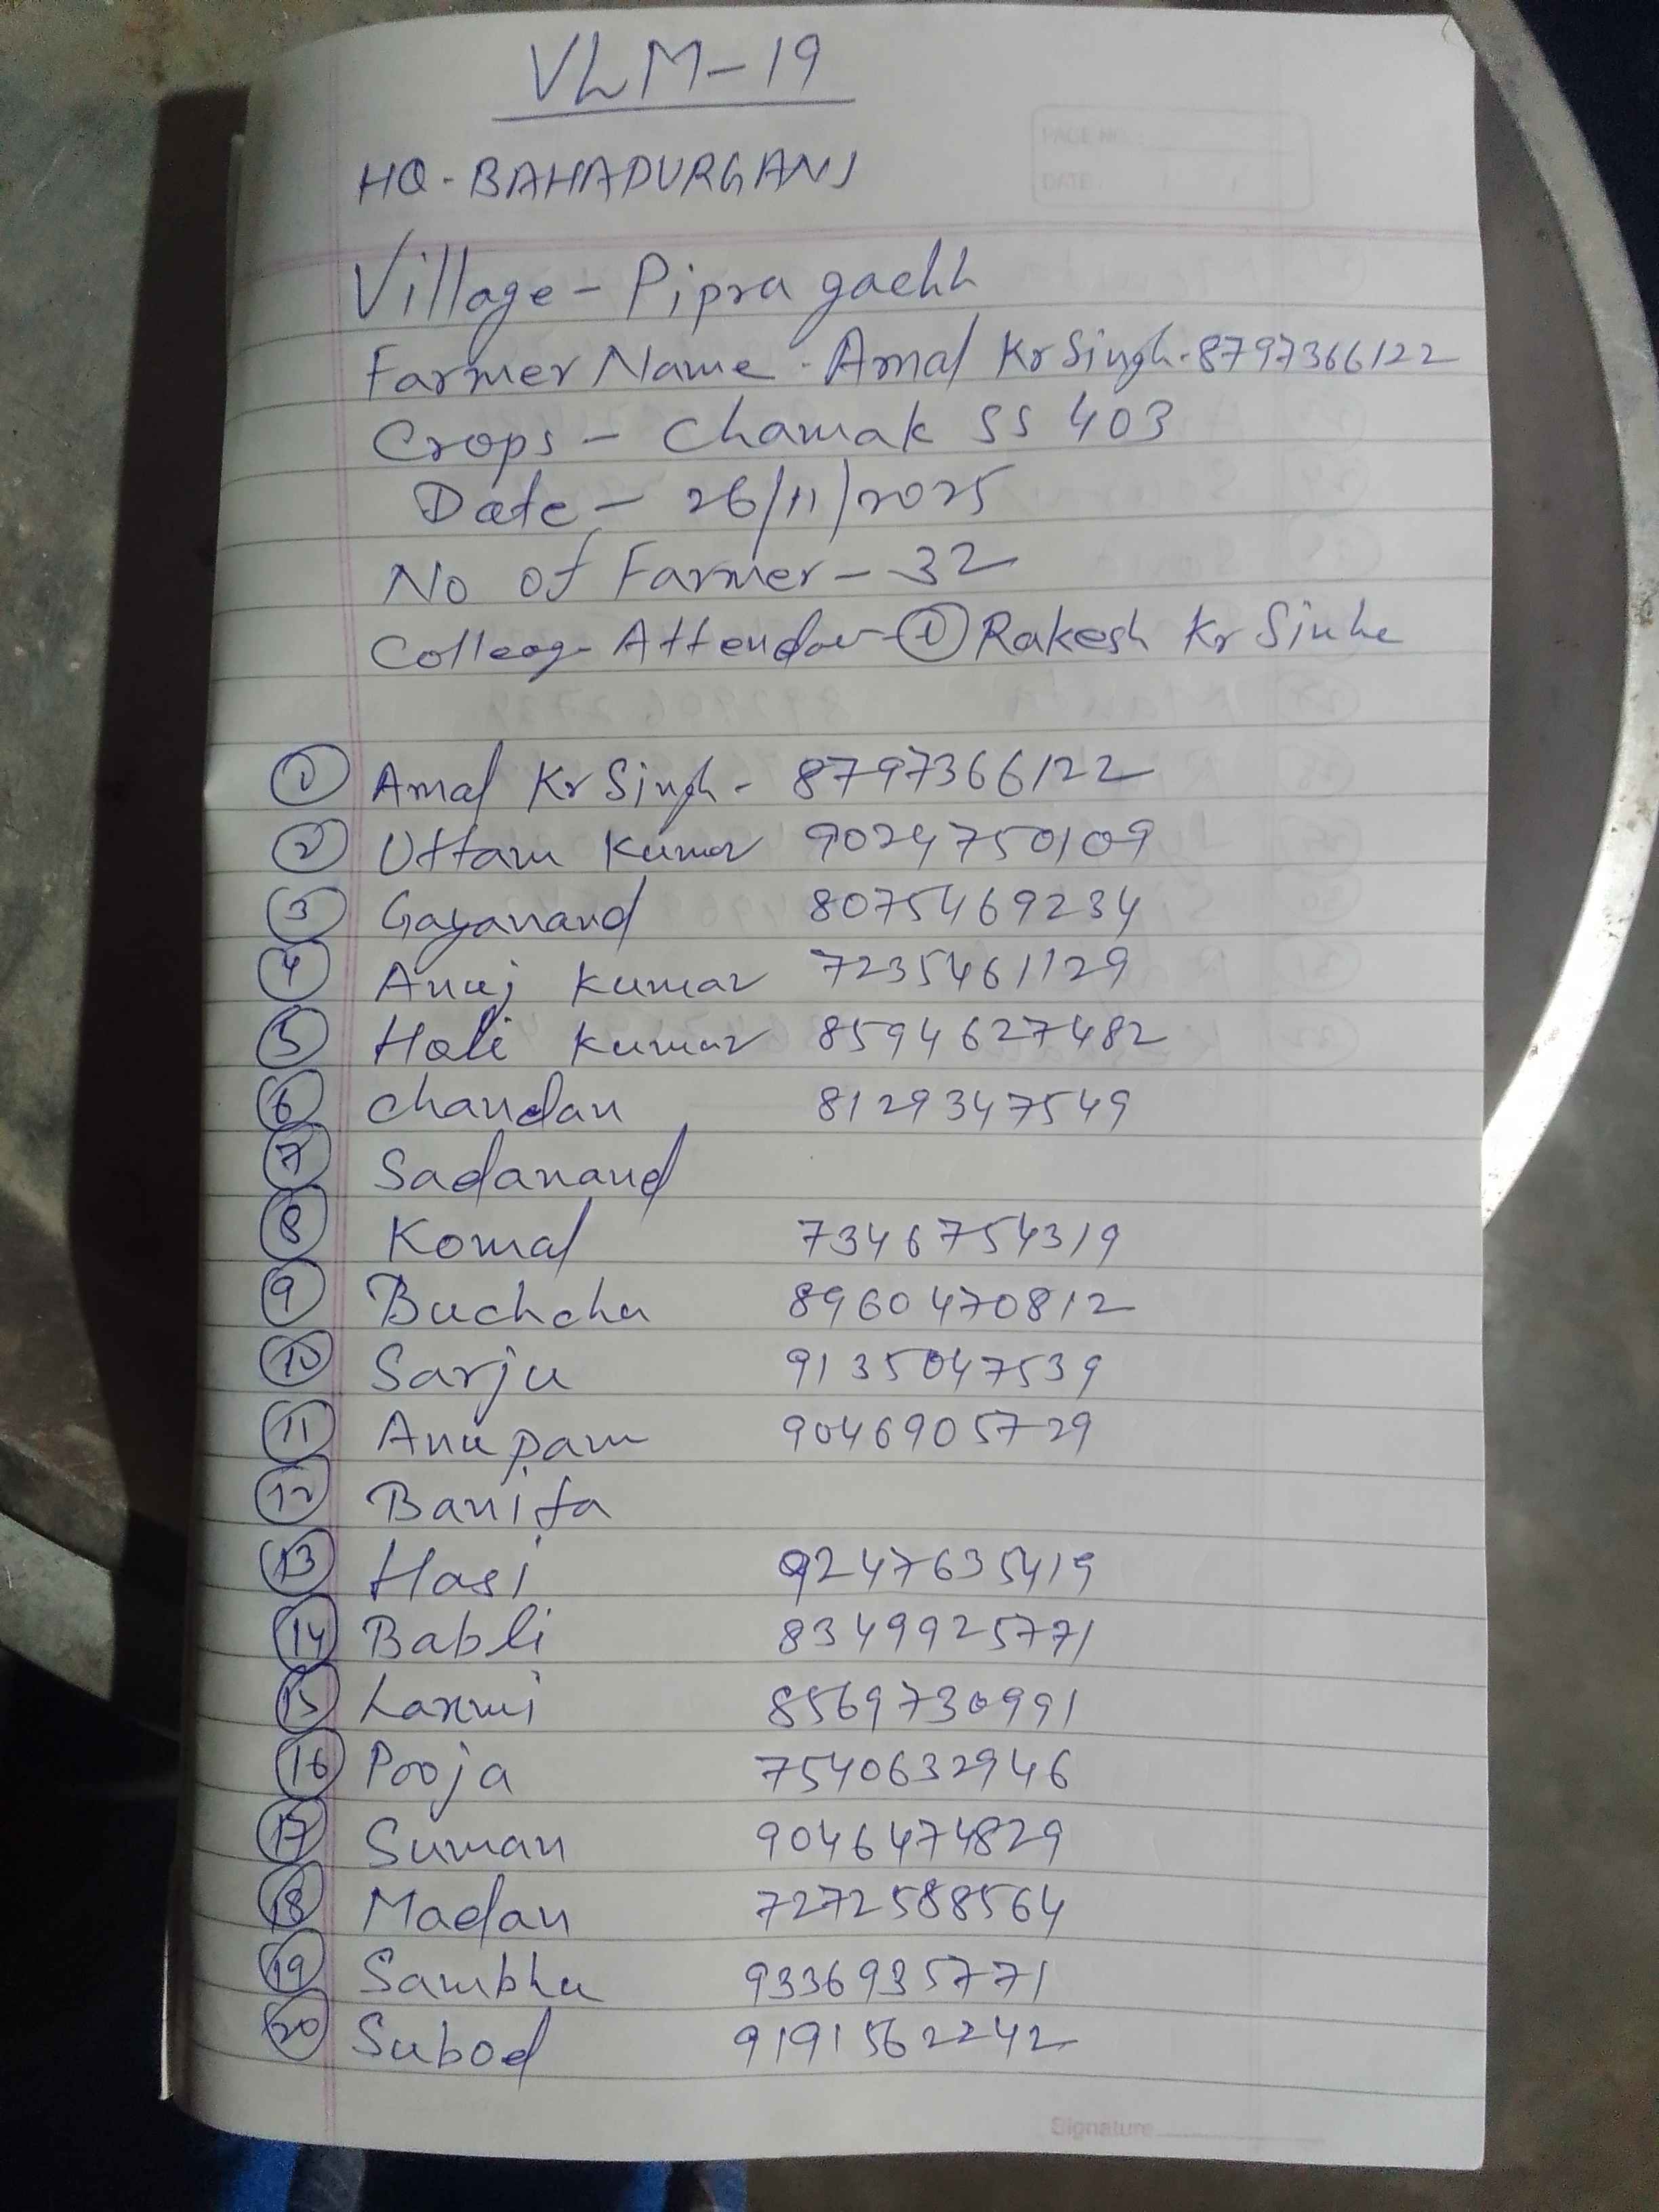 VLM-19
PAGE NO.:
DATE: / /
HQ-BAHADURGANJ
Village - Pipra gachh
Farmer Name - Amal Kr Singh - 8797366122
Crops - Chamak SS 403
Date - 26/11/2025
No of Farmer - 32
Colleag Attendar - ① Rakesh Kr Sinha
① Amal Kr Singh - 8797366122
② Uttam Kumar 9024750109
③ Gayanand 8075469234
④ Anuj Kumar 7235461129
⑤ Holi Kumar 8594627482
⑥ Chandan 8129347549
⑦ Sadanand
⑧ Komal 7346754319
⑨ Buchcha 8960470812
⑩ Sarju 9135047539
⑪ Anupam 9046905729
⑫ Banita
⑬ Hasi 9247635419
⑭ Babli 8349925771
⑮ Laxmi 8569730991
⑯ Pooja 7540632946
⑰ Suman 9046474829
⑱ Madan 7272588564
⑲ Sambhu 9336935771
⑳ Subod 9191562242
Signature